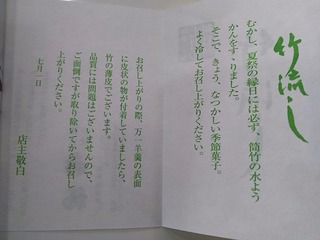 竹流し
むかし、夏祭の縁日には必ず、筒竹の水よう
かんをすゝりました。
そこで、きょう、なつかしい季節菓子。
よく冷してお召し上がりください。
お召し上がりの際、万一羊羹の表面
に皮状の物が付着していましたら、
竹の薄皮でございます。
品質には問題はございませんので、
ご面倒ですが取り除いてからお召し
上がりください。
七月一日
店主敬白